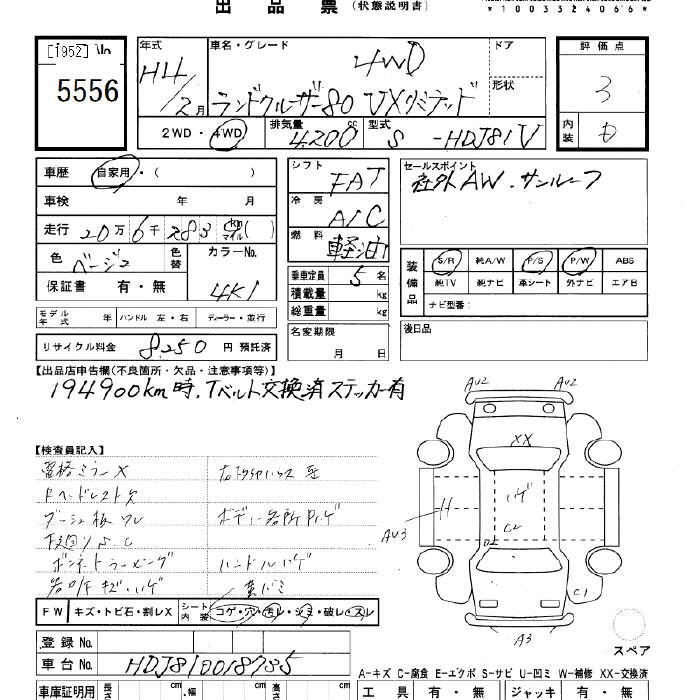 出品票（状態説明書）
*1003324066*
[1952] No
5556
年式 H4/2月
車名・グレード 4WD
ランドクルーザー80 VXリミテッド
ドア
形状
2WD・4WD 排気量 4200 cc 型式 S -HDJ81V
評価点 3
内装 D
車歴 自家用・（ ）
車検 年 月
走行 20万6千283 km マイル（ ）
色 ベージュ 色替 カラーNo. 4K1
保証書 有・無
モデル年式 年 ハンドル 左・右 ディーラー・並行
リサイクル料金 8250 円 預託済
シフト FAT
冷房 A/C
燃料 軽油
乗車定員 5 名
積載量 kg
総重量 kg
名変期限 月 日
セールスポイント
社外AW. サンルーフ
装備品 S/R 純A/W P/S P/W ABS
純TV 純ナビ 革シート 外ナビ エアB
ナビ型番：
後日品
【出品店申告欄（不良箇所・欠品・注意事項等）】
194900km時. Tベルト交換済ステッカー有
【検査員記入】
電格ミラーX
Fヘッドレスト欠
ダッシュ板ワレ
下廻りS.C
ボディー各所Pハゲ
ハンドルハゲ
FW キズ・トビ石・割レX シート内装 コゲ・穴・汚レ・シミ・破レ・スレ
登録No.
車台No. HDJ810018785
車庫証明用 長さ cm 幅 cm cm
AU2 AU2
XX
ハゲ
C2
H
AU3
C1
A3
スペア
A-キズ C-腐食 E-エクボ S-サビ U-凹ミ W-補修 XX-交換済
工具 有・無 ジャッキ 有・無